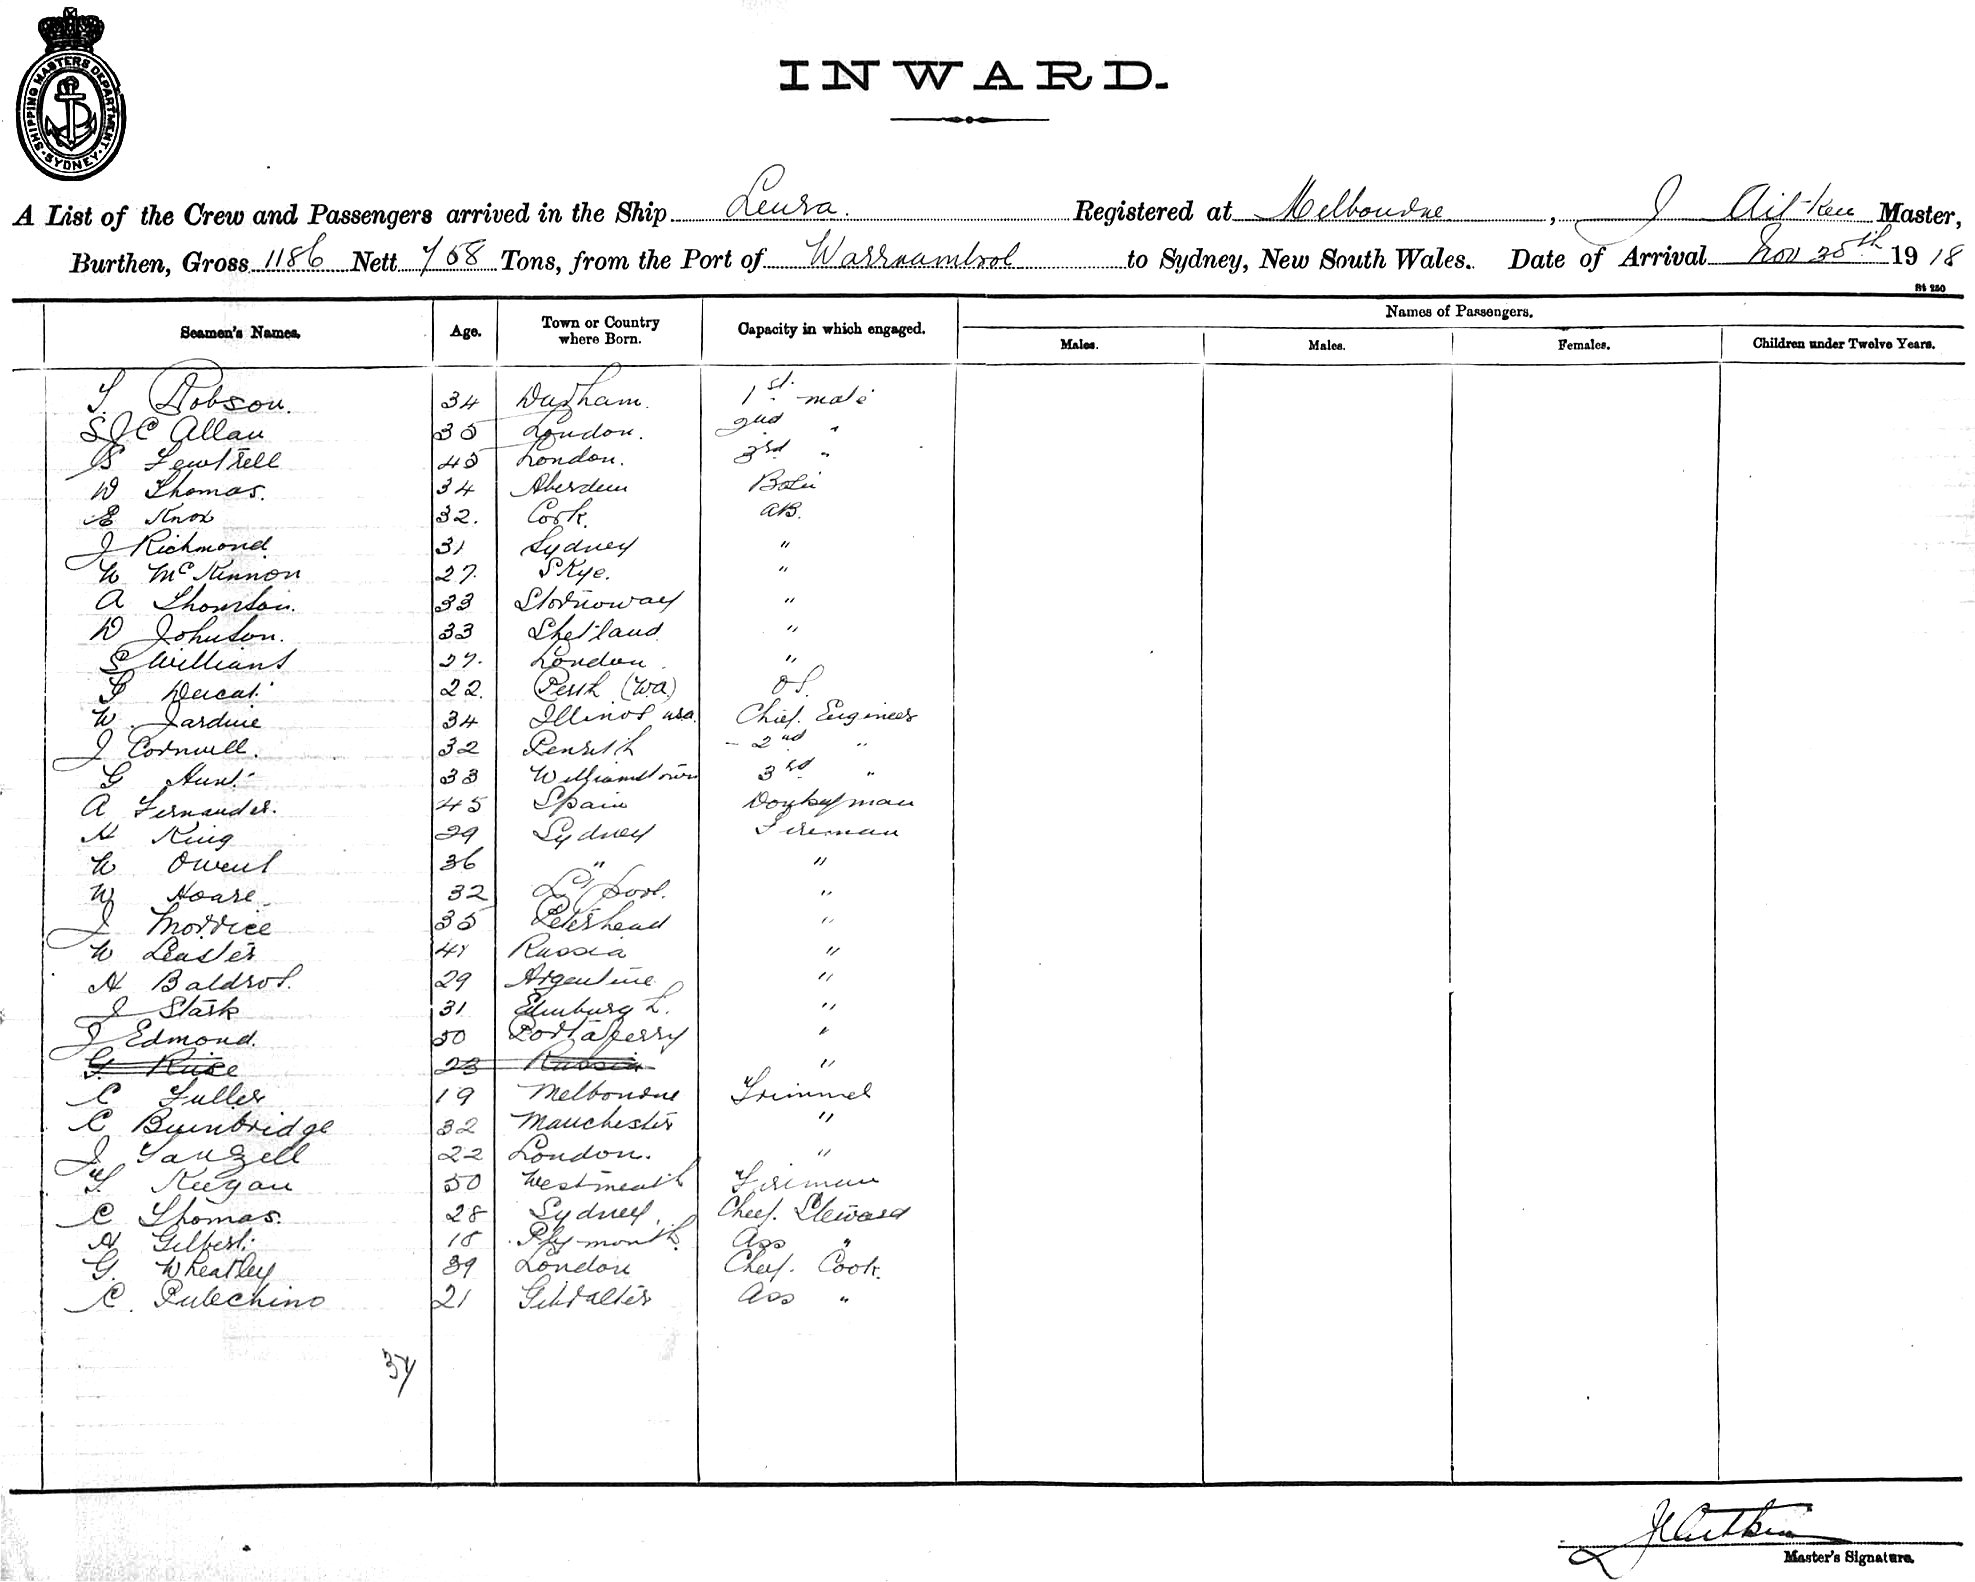 SHIPPING MASTERS DEPARTMENT · SYDNEY ·
INWARD.
A List of the Crew and Passengers arrived in the Ship Leura. Registered at Melbourne, J Aitken Master,
Burthen, Gross 1186 Nett 758 Tons, from the Port of Warrnambool to Sydney, New South Wales. Date of Arrival Nov 1918
Seamen's Names. Age. Town or Country where Born. Capacity in which engaged. Names of Passengers.
Males. Males. Females. Children under Twelve Years.
T. Robson. 34 Durham. 1st. mate
S J C Allan 35 London. 2nd "
B Lewtrell 45 London. 3rd "
D Thomas. 34 Aberdeen
E Knox 32. Cork. AB.
J Richmond 31 Sydney "
W McKinnon 27. Skye. "
A Thomson. 33 Stornoway "
D Johnson. 33 Shetland "
S Williams 27. London. "
22. Perth (W.A) OS.
W. Jardine 34 Illinos usa. Chief. Engineer
J Cornwell. 32 Penrith - 2nd "
G Hunt 33 Williamstown 3rd "
A Fernandes. 45 Spain Donkeyman
H King 29 Sydney Fireman
W Owens 36 " "
W Hoare. 32 L'pool. "
J Morrice 35 Peterhead "
W Leaster 41 Russia "
H Baldros. 29 Argentine "
J Stark 31 Edinburgh. "
J Edmond. 50 Portaferry "
G Rice 23 Russia "
C Fuller 19 Melbourne Trimmer
C Buinbridge 32 Manchester "
J 22 London. "
T. Keegan 50 Westmeath Fireman
C Thomas. 28 Sydney. Chief. Steward
H Gilbert. 18 Plymouth. Ass "
G. Wheatley 39 London Chief. Cook.
C. Pulechino 21 Gibralter Ass "
34
J Aitken
Master's Signature.